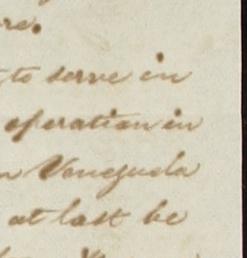 to serve in
operation in
Venezuela
at last be